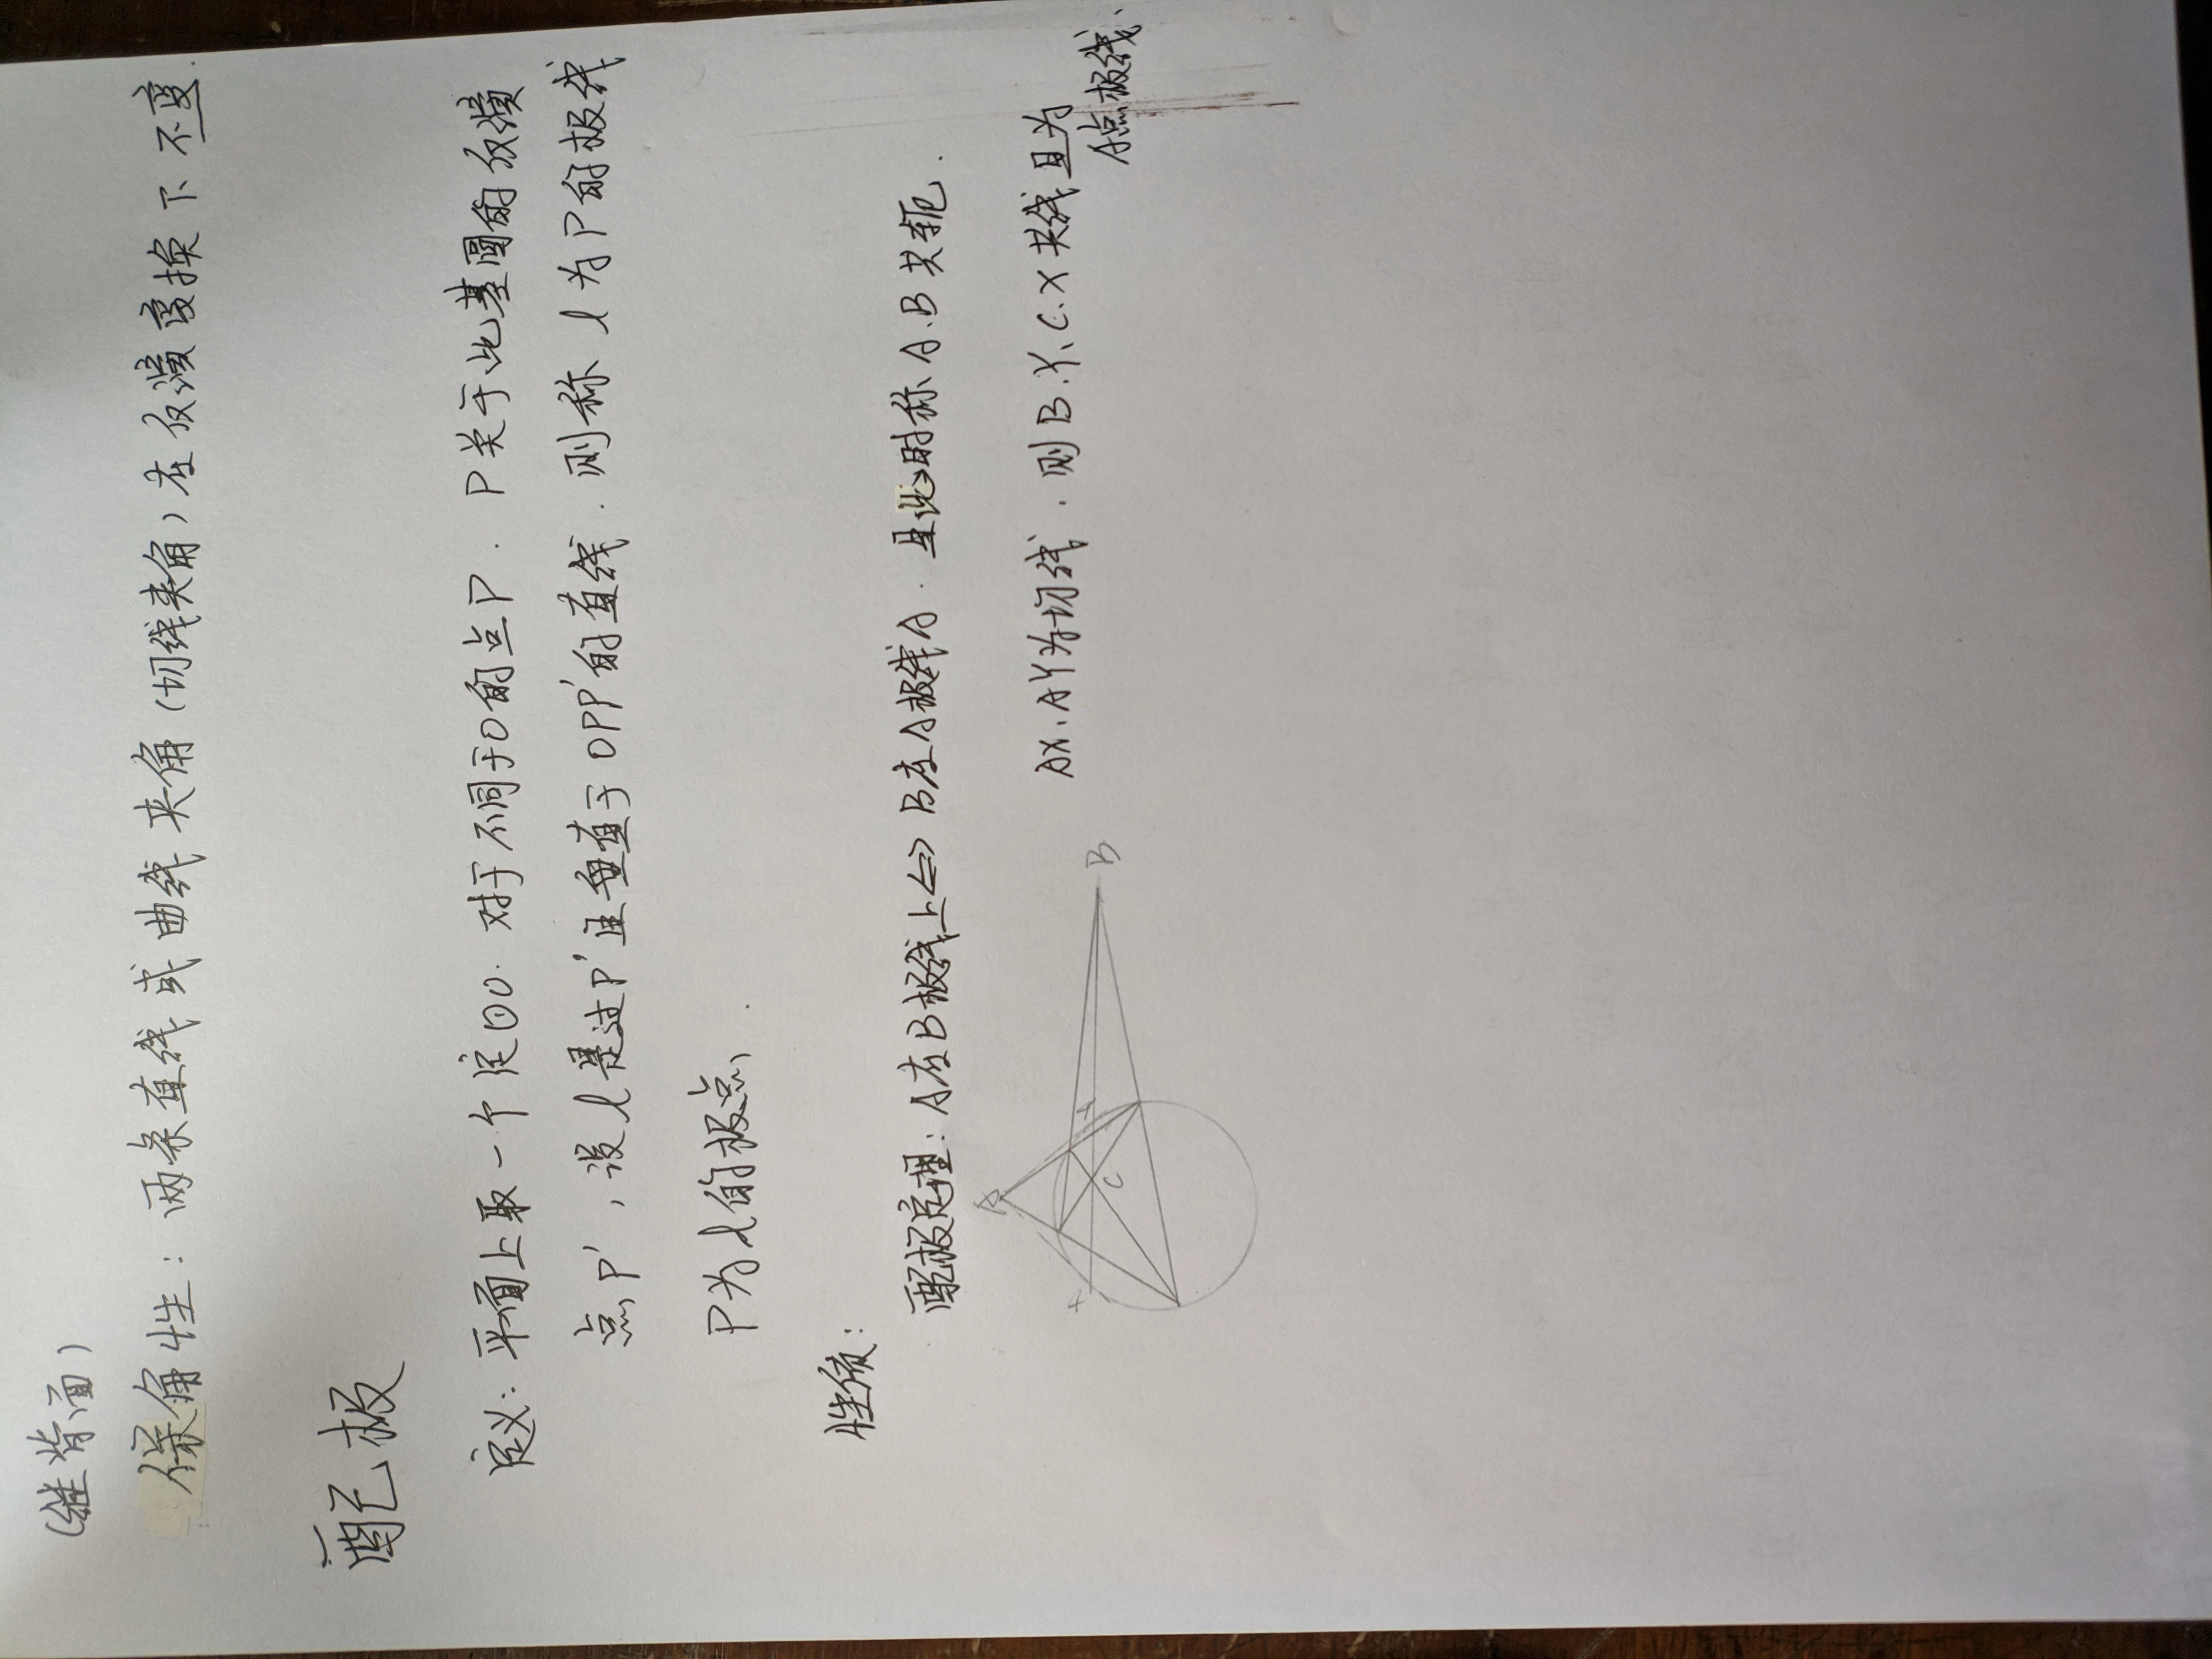 (继背面)
保角性：两条直线或曲线夹角(切线夹角)在反演变换下不变.
配极
定义：平面上取一个定⊙O. 对于不同于O的点P. P关于此基圆的反演
点P'，设l是过P'且垂直于OPP'的直线. 则称l为P的极线
P为l的极点.
性质：
配极定理：A在B极线上⇔B在A极线A. 且此时称A.B共轭.
AX、AY为切线. 则B.Y、C.X共线且为
A点极线.
A
X
Y
C
B